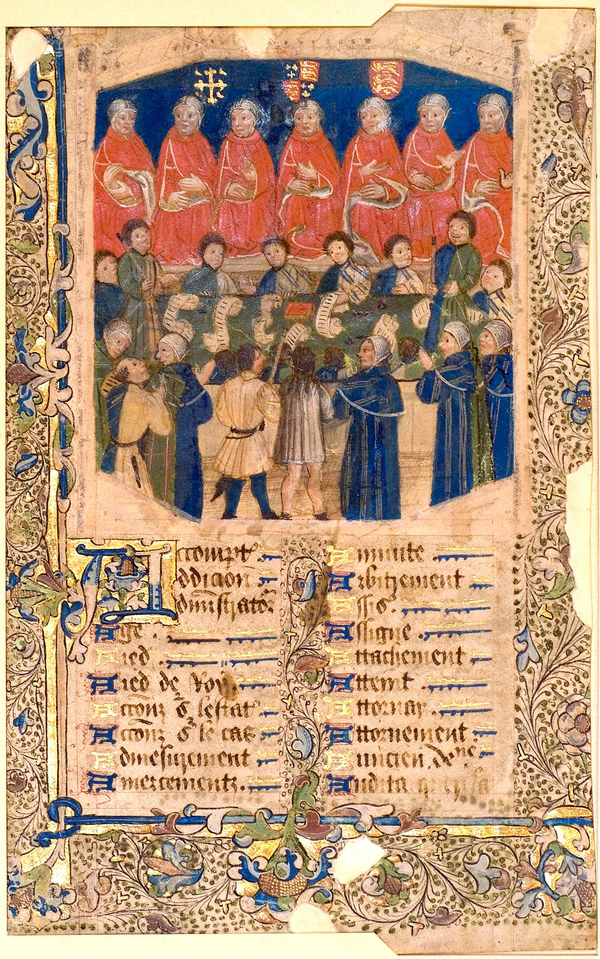 Accompt
Addicion
Administrator
Age
Aied
Aied de Roy
Accionz s lestat
Accionz s le cas
Admesurement
Amercementz
Annuite
Arbitrement
Assis
Assigne
Attachement
Atteint
Attornay
Attornement
Auncien
Audita